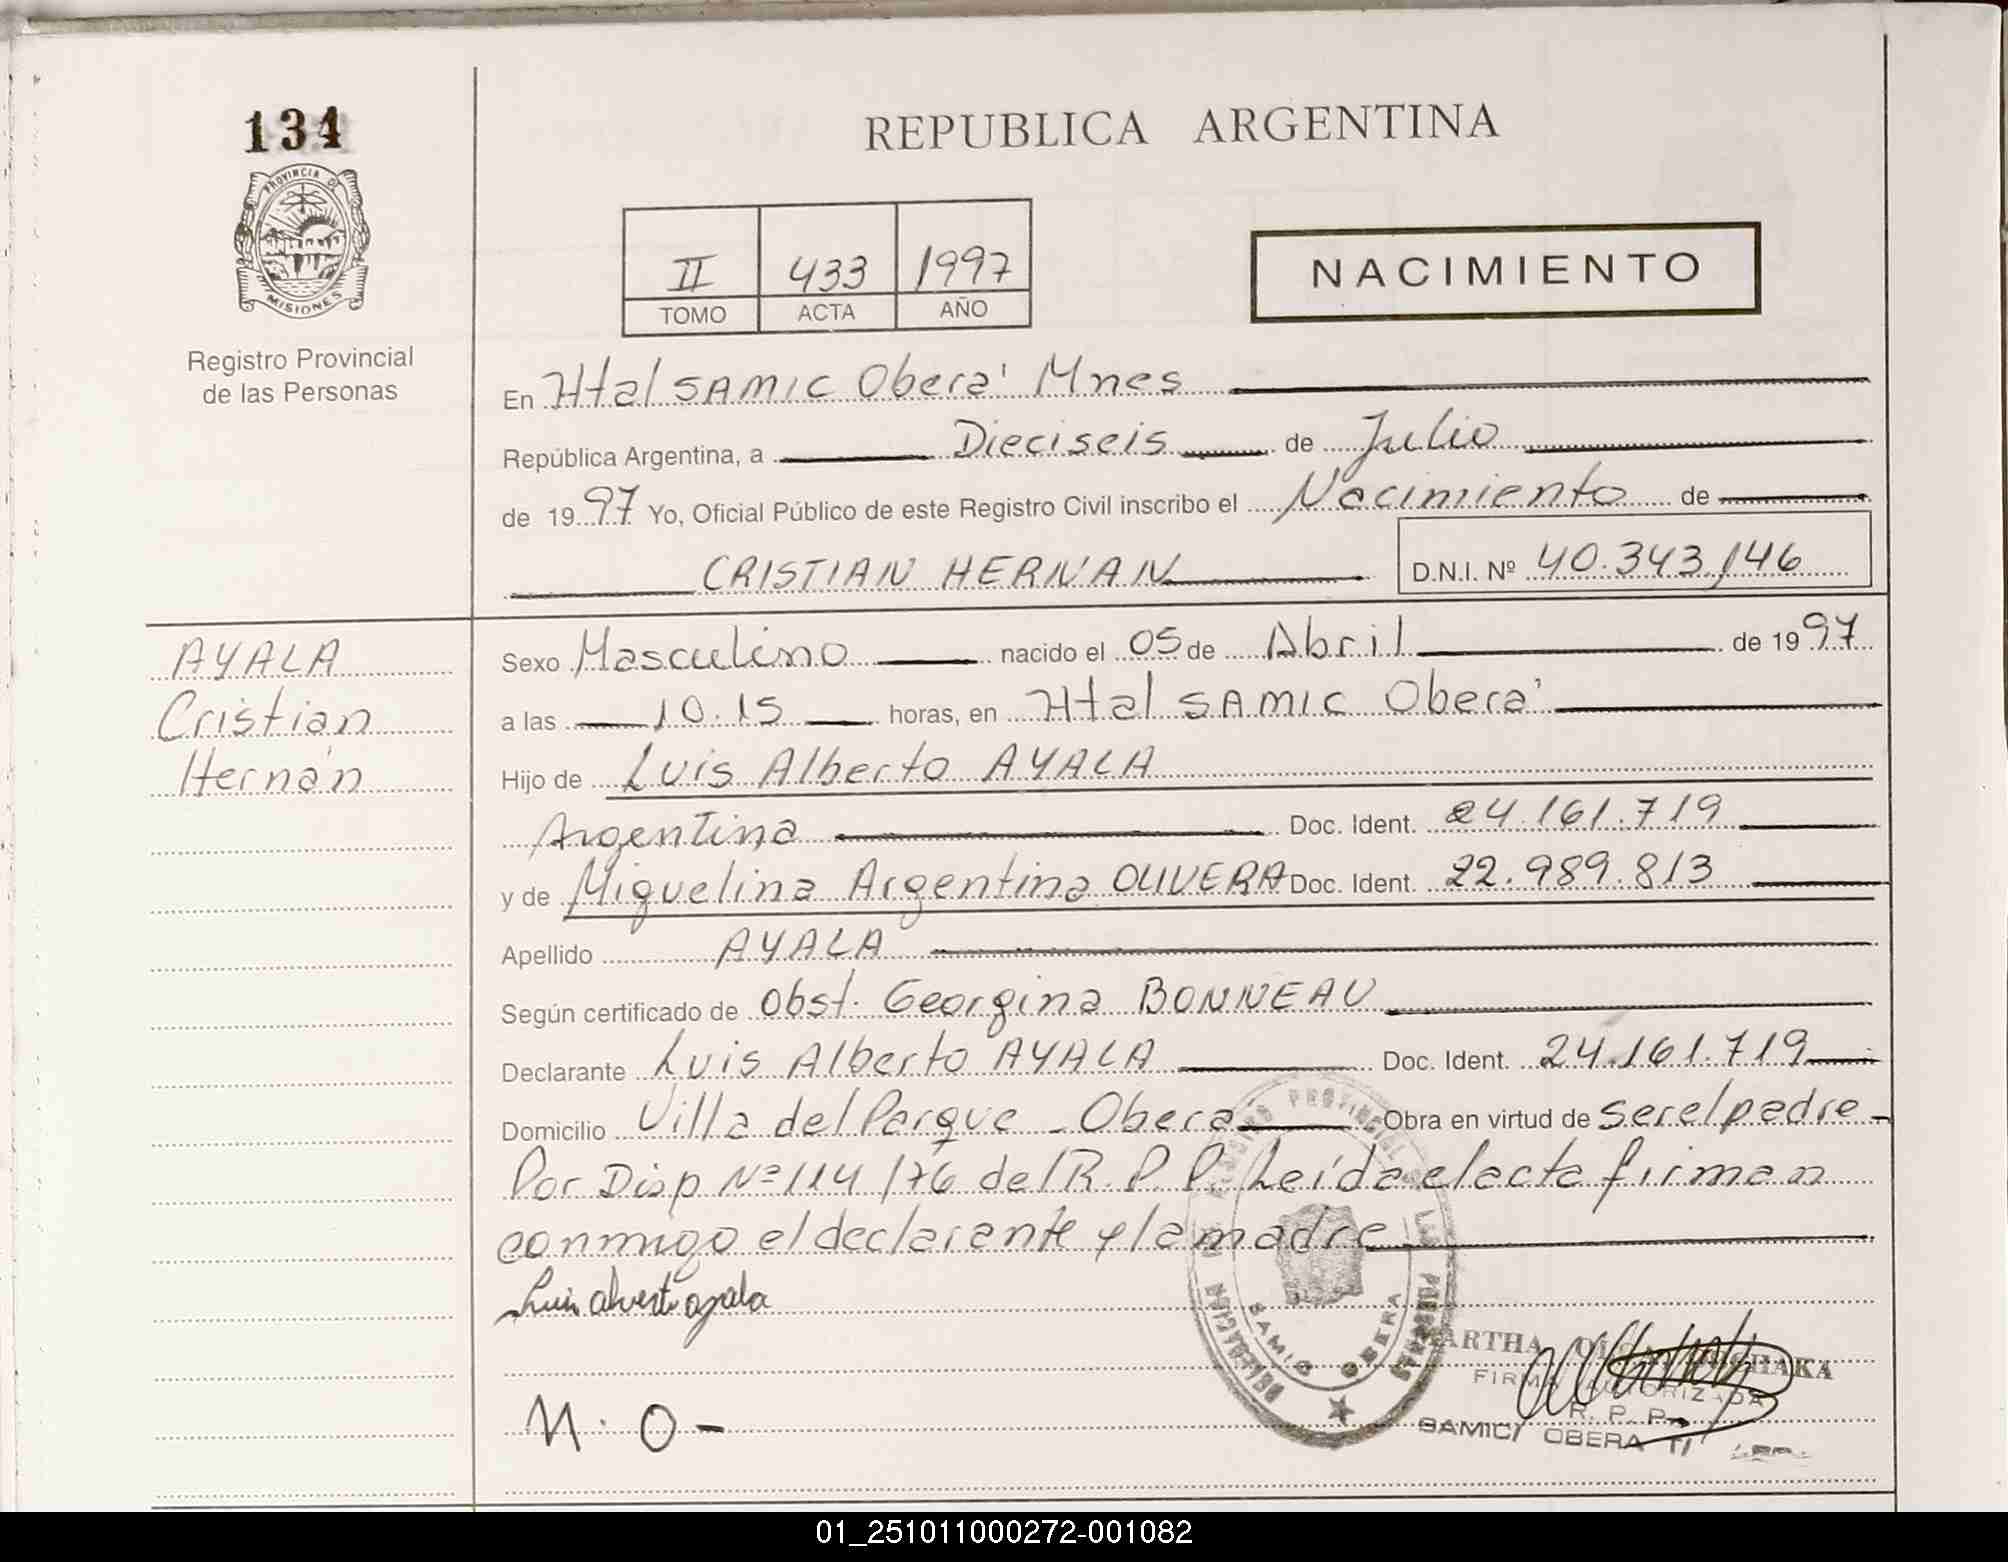 134
PROVINCIA DE
MISIONES
Registro Provincial
de las Personas
REPUBLICA ARGENTINA
II 433 1997
TOMO ACTA AÑO
NACIMIENTO
En Htal SAMIC Oberá Mnes
República Argentina, a Dieciseis de Julio
de 1997 Yo, Oficial Público de este Registro Civil inscribo el Nacimiento de
CRISTIAN HERNAN D.N.I. Nº 40.343.146
AYALA
Cristian
Hernán
Sexo Masculino nacido el 05 de Abril de 1997
a las 10.15 horas, en Htal SAMIC Oberá
Hijo de Luis Alberto AYALA
Argentina Doc. Ident. 24.161.719
y de Miguelina Argentina OLIVERA Doc. Ident. 22.989.813
Apellido AYALA
Según certificado de Obst. Georgina BONNEAU
Declarante Luis Alberto AYALA Doc. Ident. 24.161.719
Domicilio Villa del Parque - Oberá Obra en virtud de ser el padre -
Por Disp Nº 114/76 del R.P.P. Leída el acta firman
conmigo el declarante y la madre
Luis alverto ayala
REGISTRO PROVINCIAL DE LAS PERSONAS
DELEGACION
SAMIC OBERA
MARTHA
FIRMA AUTORIZADA
R. P. P.
SAMIC OBERA
M. O -
01_251011000272-001082